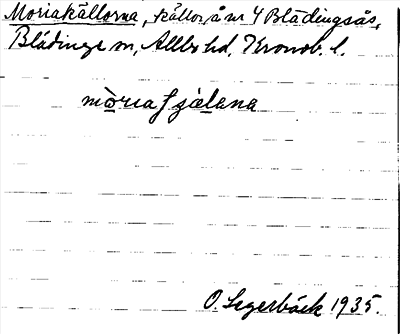 Moriakällorna, källor å nr 4 Blädingsås,
Blädinge sn, Allbo hd, Kronob. l.
mòriaʃjælana
O. Segerbäck 1935.